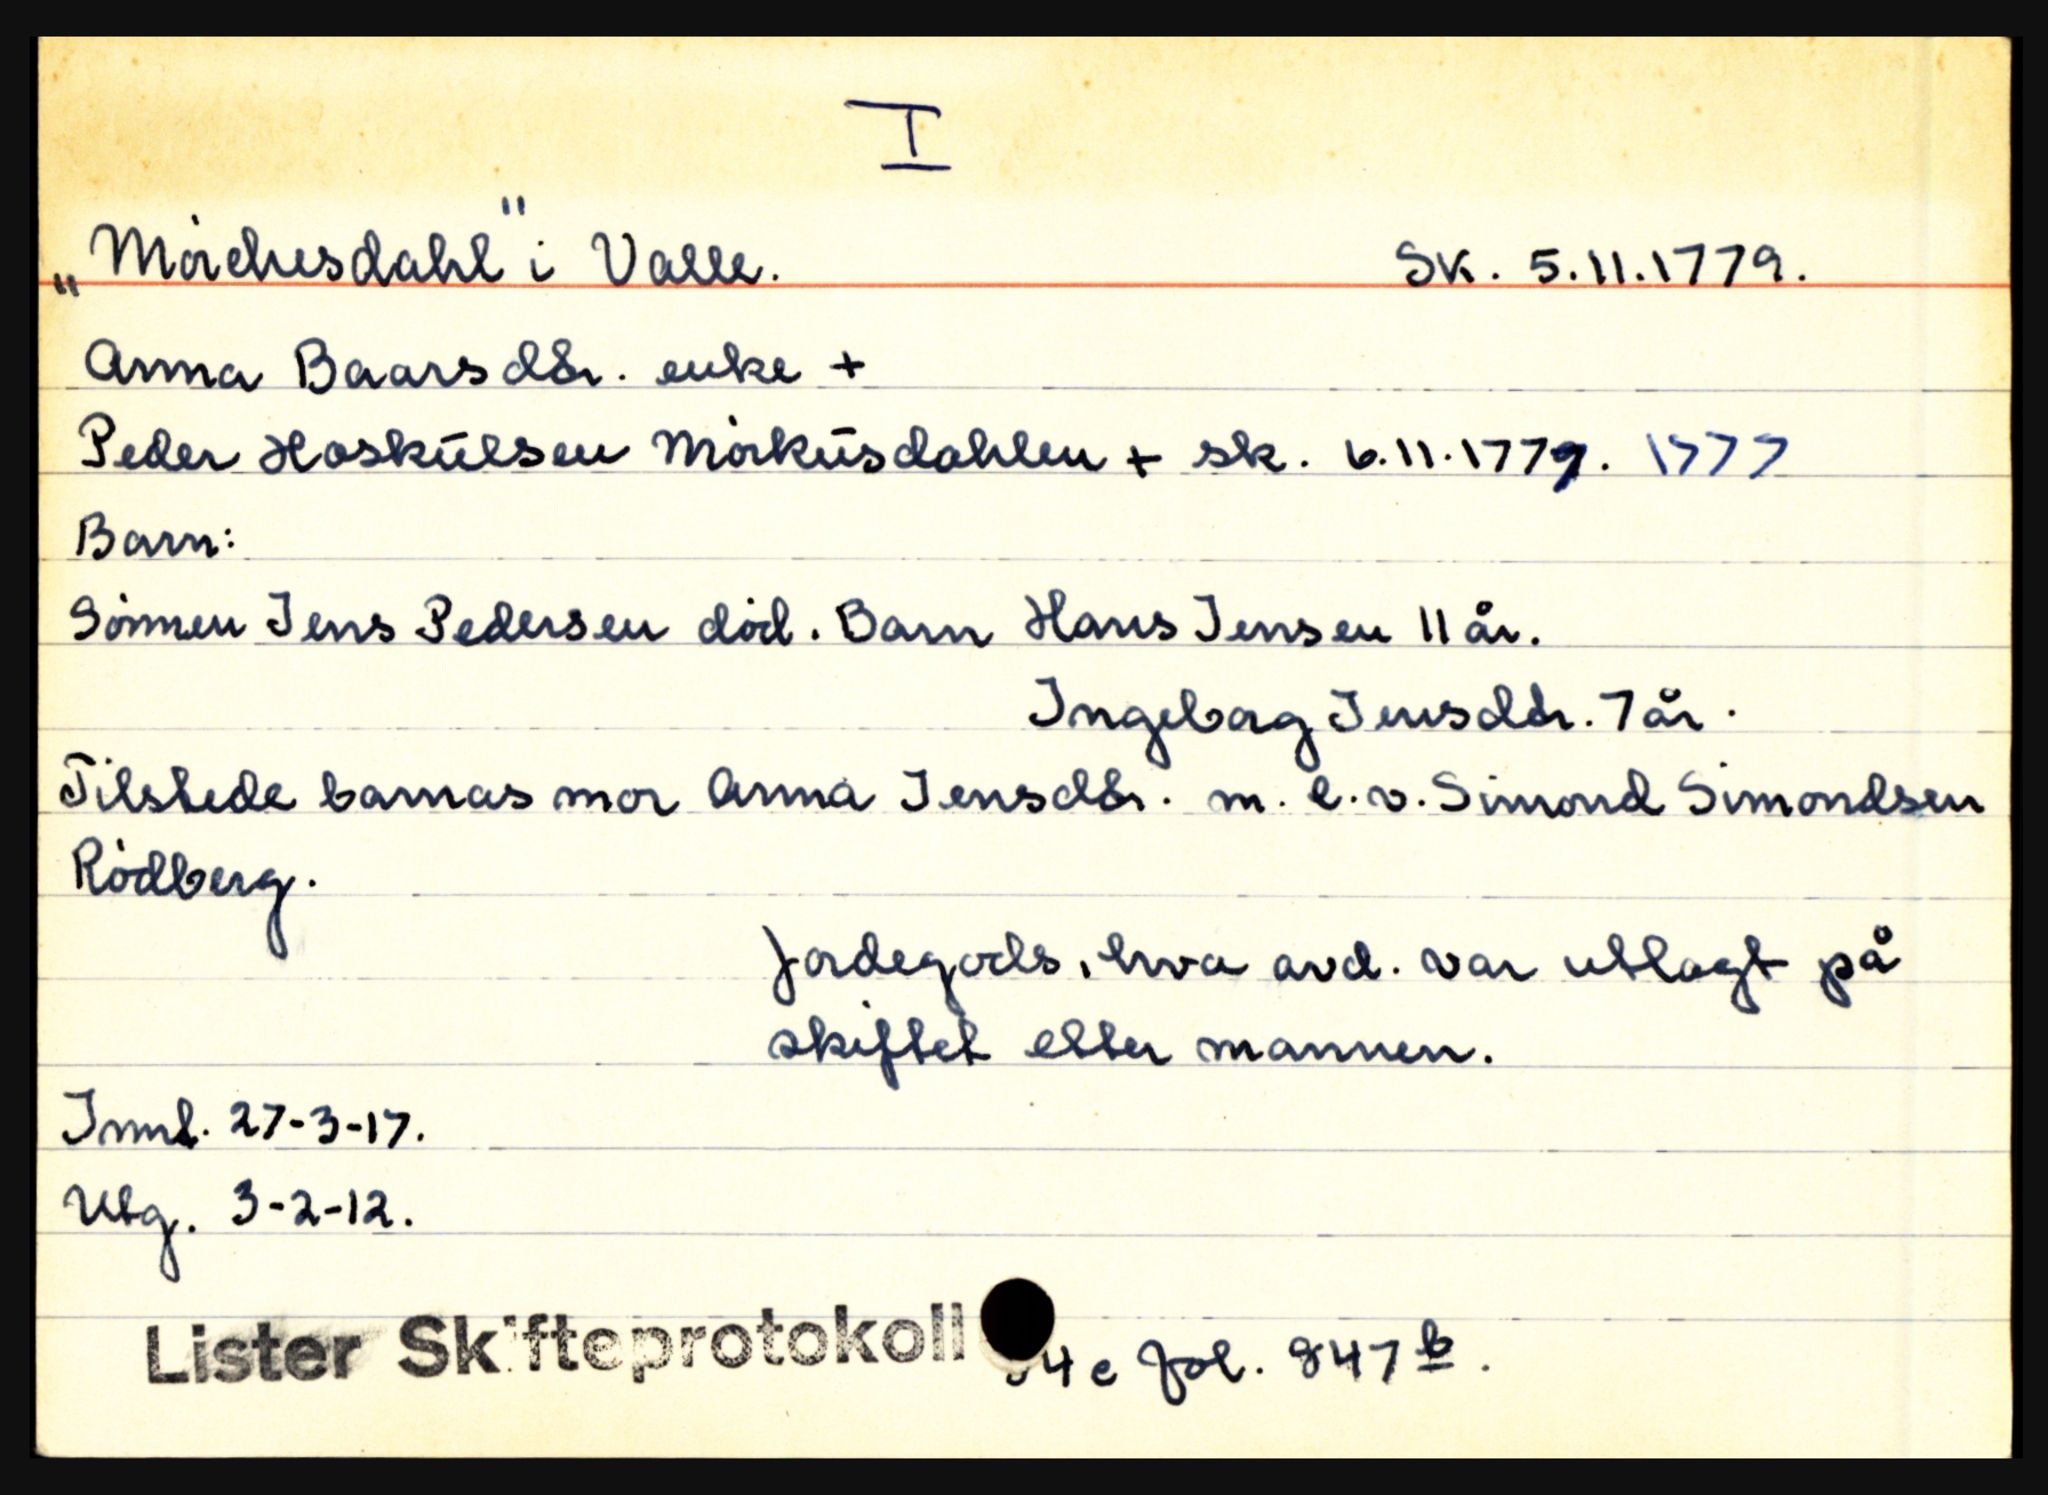 I
„Mörchesdahl" i Valle. Sk. 5.11.1779.
Anna Baarsdtr. enke +
Peder Hoskülsen Mörküsdahlen + sk. 6.11.1777. 1777
Barn:
Sönnen Jens Pedersen död. Barn Hans Jensen 11 år.
Ingeborg Jensdtr. 7 år.
Tilstede barnas mor Anna Jensdtr. m. l. v. Simond Simondsen
Rödberg.
Jordegods, hva avd. var utlagt på
skiftet etter mannen.
Innt. 27-3-17.
Utg. 3-2-12.
Lister Skifteprotokoll 4e fol. 847 b.